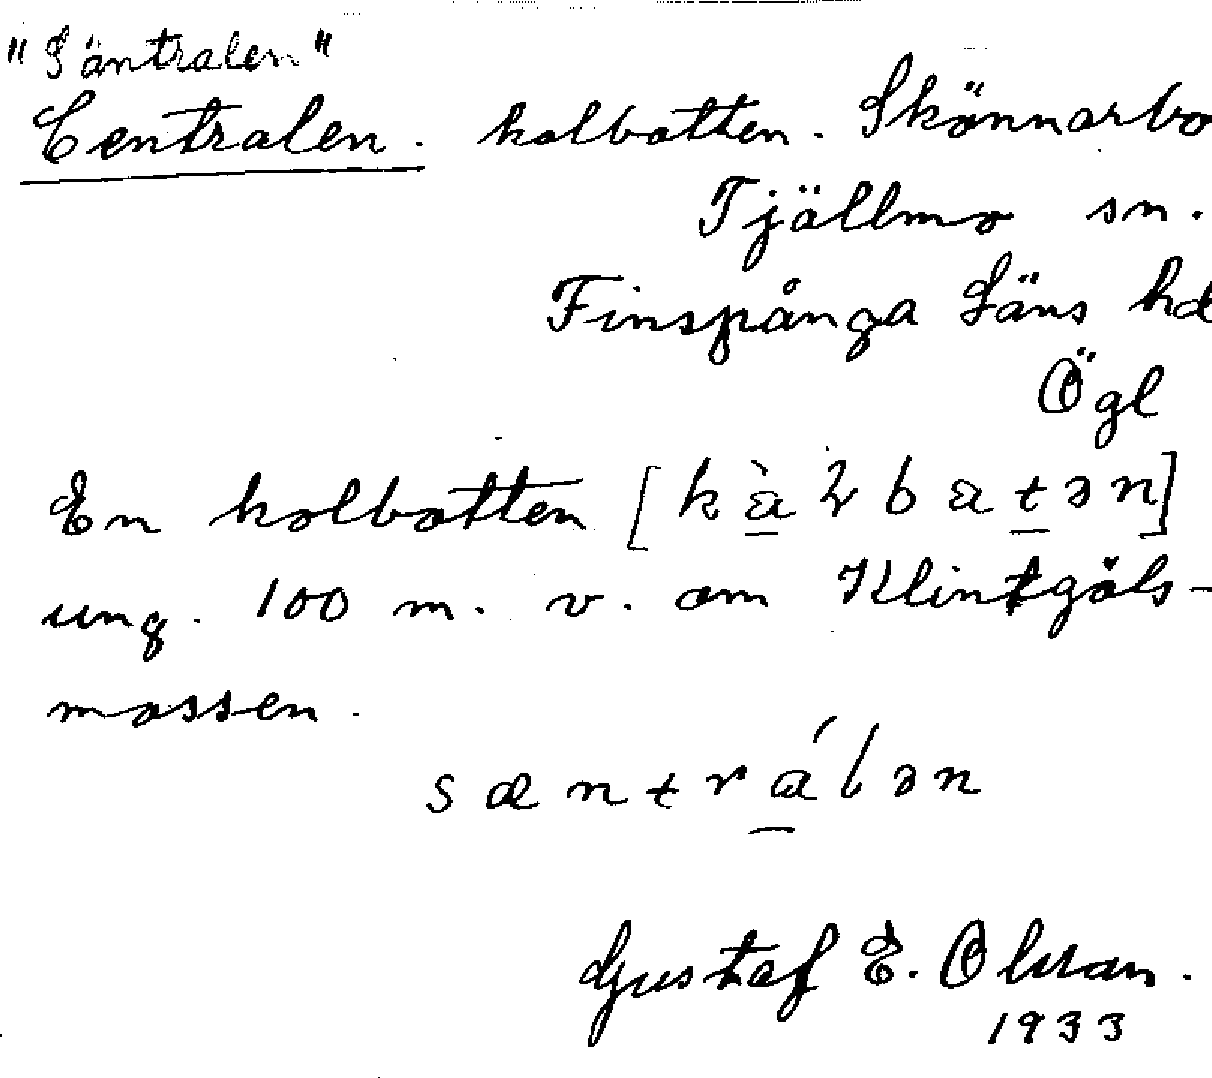 "Säntralen"
Centralen. kolbotten. Skönnarbo
Tjällmo sn.
Finspånga Läns hd
Ögl
En kolbotten
ung. 100 m. v. om Klintgöls-
mossen.
Gustaf E. Olsson.
1933